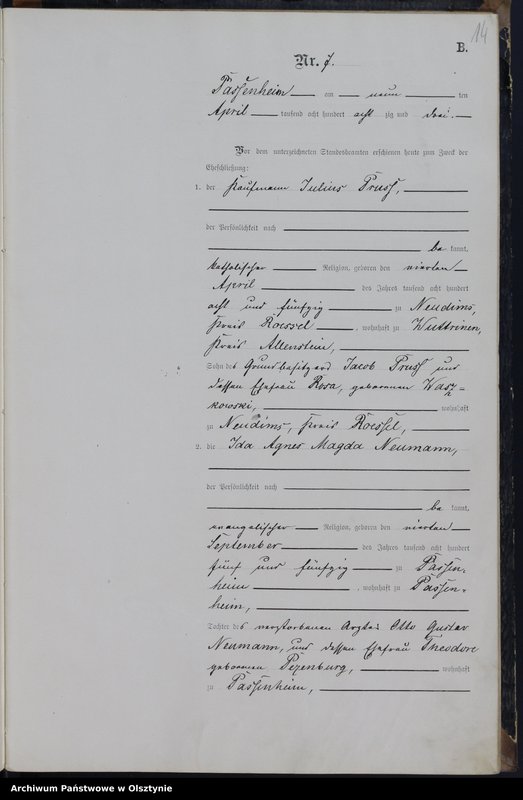 14
B.
Nr. 7.
Passenheim am neun ten
April tausend acht hundert acht zig und drei.
Vor dem unterzeichneten Standesbeamten erschienen heute zum Zweck der
Eheschließung:
1. der Kaufmann Julius Pruss,
der Persönlichkeit nach
be kannt,
katholischer Religion, geboren den vierten
April des Jahres tausend acht hundert
acht und fünfzig zu Neudims,
Kreis Roessel, wohnhaft zu Wuttrinen,
Kreis Allenstein,
Sohn des Grundbesitzers Jacob Pruss und
dessen Ehefrau Rosa, geborenen
kowski, wohnhaft
zu Neudims, Kreis Roessel,
2. die Ida Agnes Magda Neumann,
der Persönlichkeit nach
be kannt,
evangelischer Religion, geboren den vierten
September des Jahres tausend acht hundert
fünf und fünfzig zu Passen-
heim, wohnhaft zu Passen-
heim,
Tochter des verstorbenen Arztes Otto Gustav
Neumann, und dessen Ehefrau Theodore
geborenen wohnhaft
zu Passenheim,
Archiwum Państwowe w Olsztynie